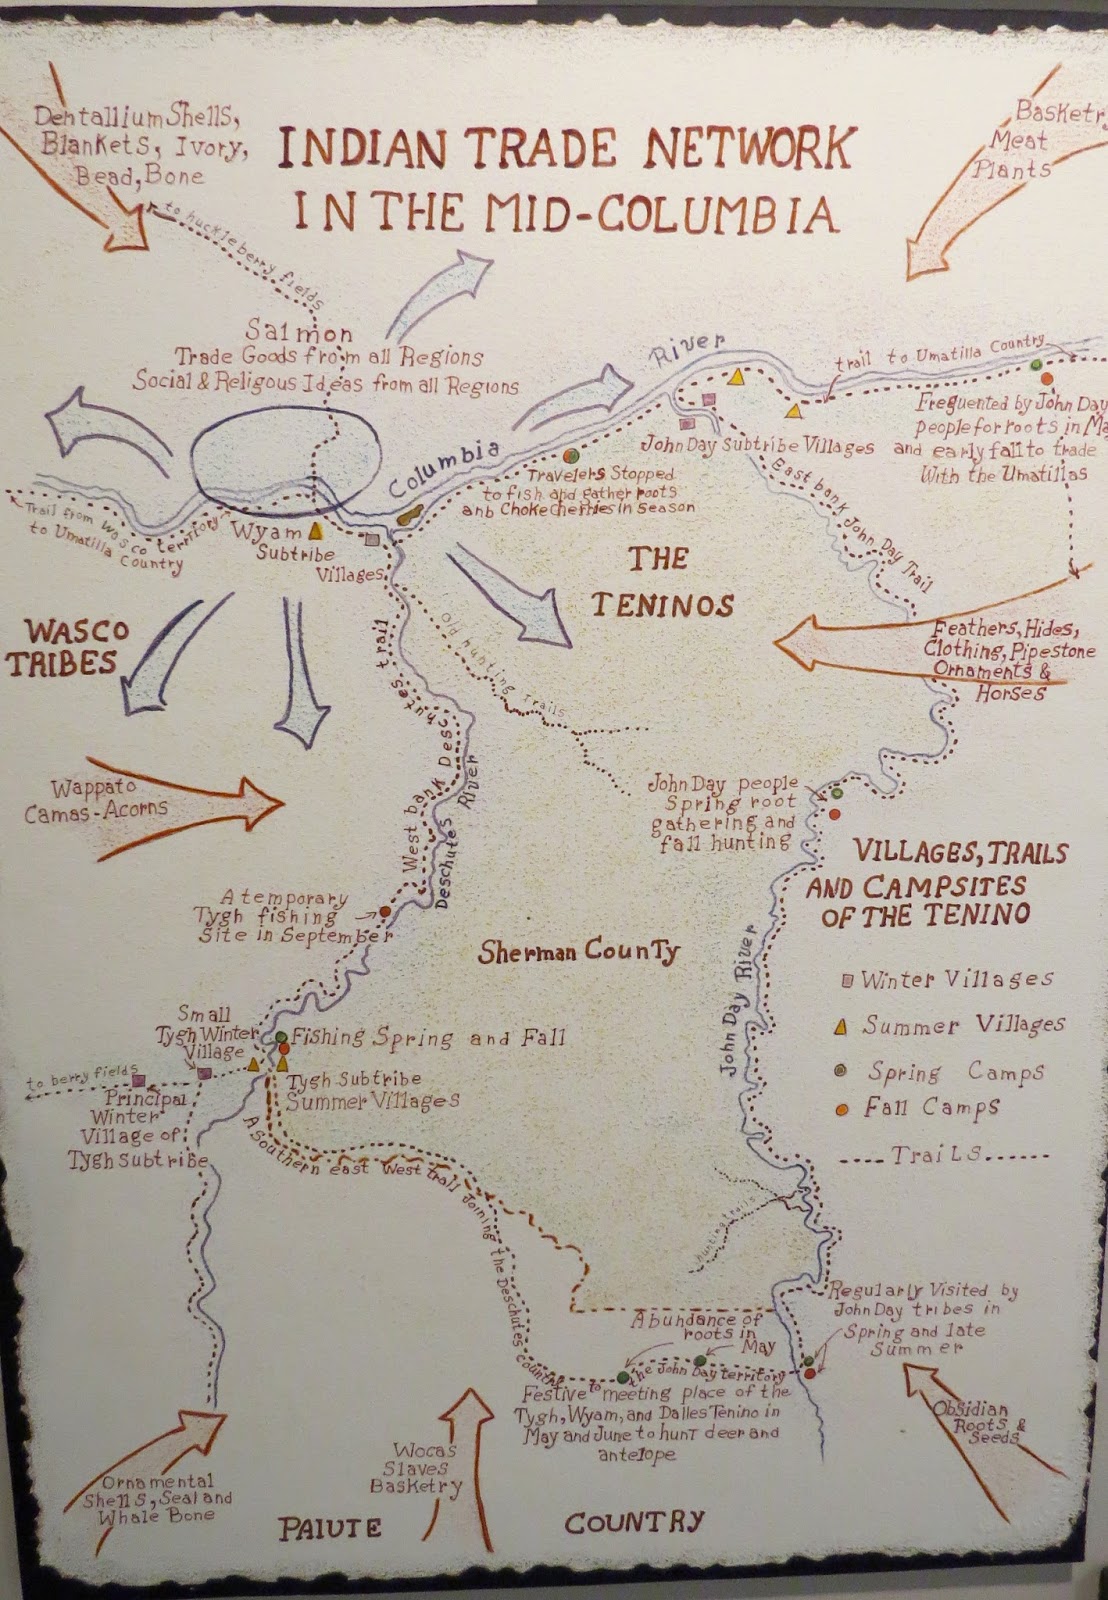 Dentallium Shells,
Blankets, Ivory,
Bead, Bone
INDIAN TRADE NETWORK
IN THE MID-COLUMBIA
Basketry
Meat
Plants
to huckleberry fields
Salmon
Trade Goods from all Regions
Social & Religous Ideas from all Regions
Columbia
River
trail to Umatilla Country
Freguented by John Day
people for roots in May
and early fall to trade
With the Umatillas
John Day Subtribe Villages
East bank John Day Trail
Travelers Stopped
to fish and gather roots
anb Chokecherries in season
Trail from Wasco territory
to Umatilla
Country
Wyam
Subtribe
Villages
THE
TENINOS
WASCO
TRIBES
Old hunting Trails
West bank Deschutes trail
Deschutes River
Feathers, Hides,
Clothing, Pipestone
Ornaments &
Horses
Wappato
Camas-Acorns
John Day people
Spring root
gathering and
fall hunting
VILLAGES, TRAILS
AND CAMPSITES
OF THE TENINO
Winter Villages
Summer Villages
Spring Camps
Fall Camps
Trails
A temporary
Tygh fishing
Site in September
Sherman County
John Day River
Small
Tygh Winter
Village
Fishing Spring and Fall
to berry fields
Principal
Winter
Village of
Tygh subtribe
Tygh Subtribe
Summer Villages
A Southern east West trail Joining the Deschutes country
to the John Day territory
hunting trails
Regularly Visited by
John Day tribes in
Spring and late
Summer
Abundance of
roots in
May
Festive meeting place of the
Tygh, Wyam, and Dalles Tenino in
May and June to hunt deer and
antelope
Obsidian
Roots &
Seeds
Wocas
Slaves
Basketry
Ornamental
Shells, Seal and
Whale Bone
PAIUTE COUNTRY